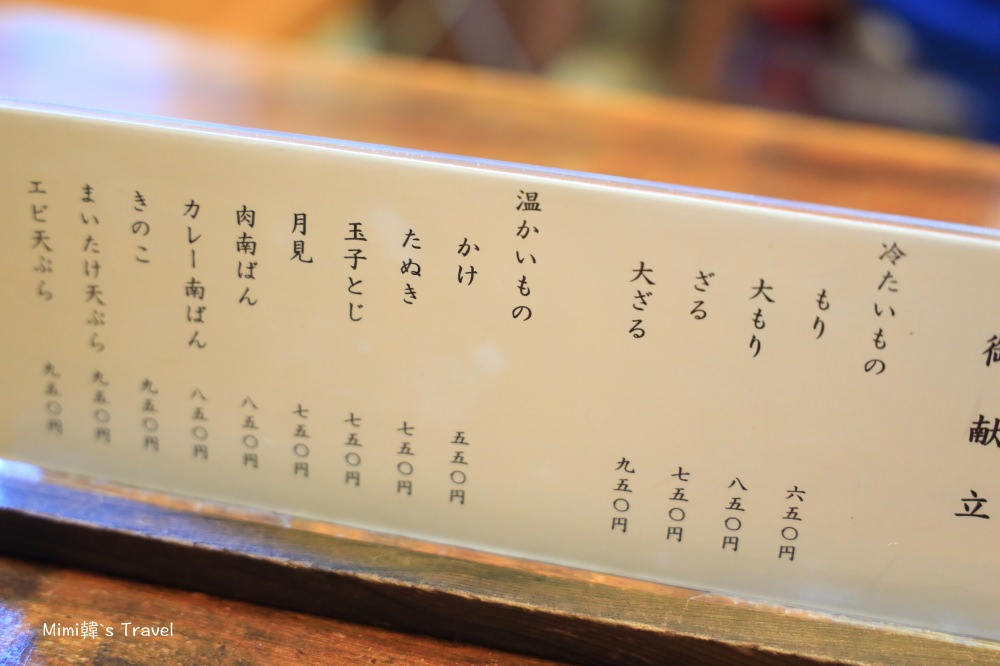 御献立
冷たいもの
もり 六五〇円
大もり 八五〇円
ざる 七五〇円
大ざる 九五〇円
温かいもの
かけ 五五〇円
たぬき 七五〇円
玉子とじ 七五〇円
月見 七五〇円
肉南ばん 八五〇円
カレー南ばん 八五〇円
きのこ 九五〇円
まいたけ天ぷら 九五〇円
エビ天ぷら 九五〇円
Mimi韓`s Travel